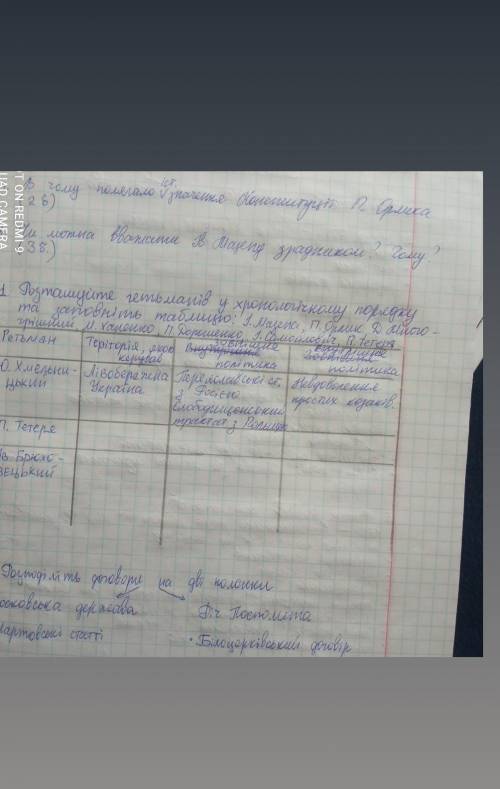 SHOT ON REDMI 9
QUAD CAMERA
чому полягало іст. значення Конституції П. Орлика
2 б)
можна вважати І. Мазепу зрадником? Чому?
3 б.)
1 Розташуйте гетьманів у хронологічному порядку
та заповніть таблицю: І. Мазепа, П. Орлик, Д. Много-
грішний, М. Ханенко, П. Дорошенко, І. Самойлович, П. Тетеря
Гетьман
Територія, якою керував
Внутрішня зовнішня політика
внутрішня зовнішня політика
Ю. Хмельни-
цький
Лівобережна
Україна
Переяславські ст.
з Росією
Слободищенський
трактат з Річчю
Невдоволення
простих козаків.
П. Тетеря
Ів. Брюхо-
вецький
Розподіліть договори на дві колонки
Московська держава
Річ Посполита
Мартовські статті
• Білоцерківський договір